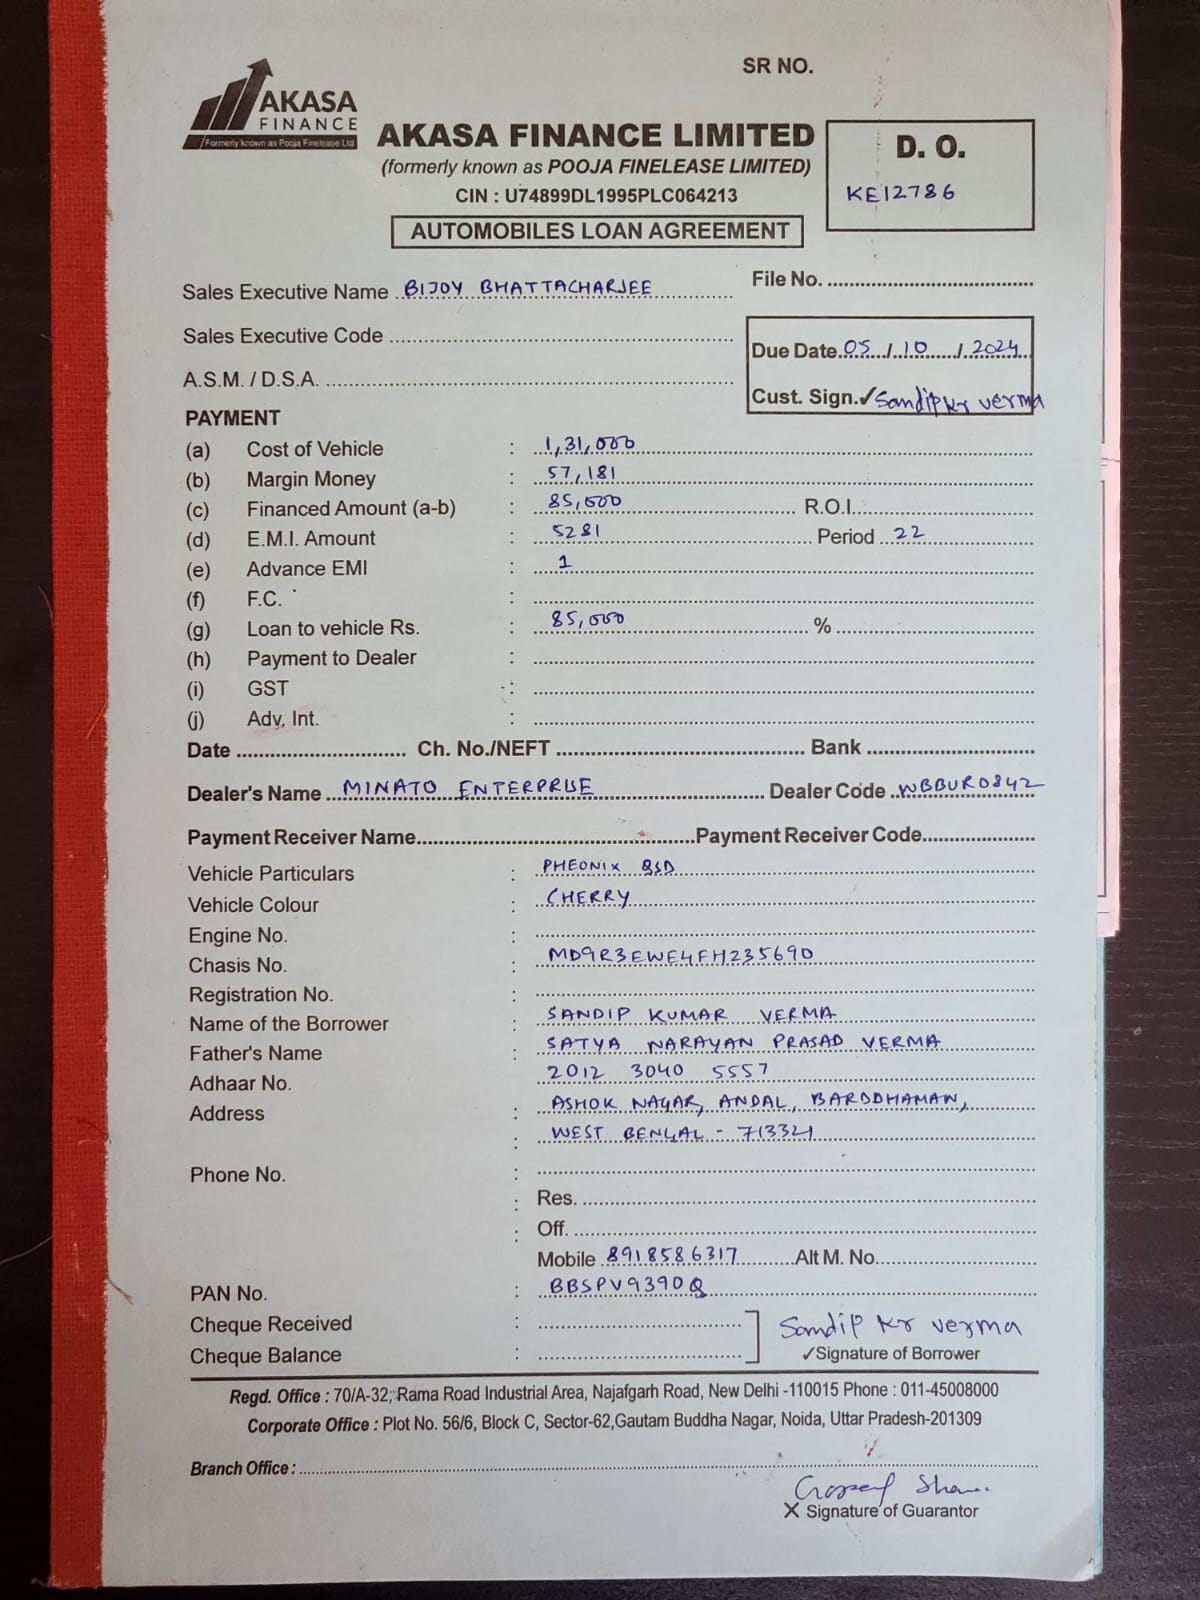 SR NO.
AKASA
FINANCE
Formerly known as Pooja Finelease Ltd
AKASA FINANCE LIMITED
(formerly known as POOJA FINELEASE LIMITED)
CIN : U74899DL1995PLC064213
AUTOMOBILES LOAN AGREEMENT
D. O.
KE12786
Sales Executive Name BIJOY BHATTACHARJEE
File No.
Sales Executive Code
Due Date 05/10/2024
A.S.M. / D.S.A.
Cust. Sign. ✓ Sandip kr verma
PAYMENT
(a) Cost of Vehicle : 1,31,000
(b) Margin Money : 57,181
(c) Financed Amount (a-b) : 85,000 R.O.I.
(d) E.M.I. Amount : 5281 Period 22
(e) Advance EMI : 1
(f) F.C. :
(g) Loan to vehicle Rs. : 85,000 %
(h) Payment to Dealer :
(i) GST :
(j) Adv. Int. :
Date Ch. No./NEFT Bank
Dealer's Name MINATO ENTERPRISE Dealer Code WBBUR0842
Payment Receiver Name Payment Receiver Code
Vehicle Particulars : PHEONIX BSD
Vehicle Colour : CHERRY
Engine No. :
Chasis No. : MD9R3EWE4FH235690
Registration No. :
Name of the Borrower : SANDIP KUMAR VERMA
Father's Name : SATYA NARAYAN PRASAD VERMA
Adhaar No. 2012 3040 5557
Address : ASHOK NAGAR, ANDAL, BARDDHAMAN,
: WEST BENGAL - 713321
Phone No. :
: Res.
: Off.
: Mobile 8918586317 Alt M. No.
PAN No. : BBSPV9390Q
Cheque Received :
Sandip kr verma
Cheque Balance :
✓Signature of Borrower
Regd. Office : 70/A-32, Rama Road Industrial Area, Najafgarh Road, New Delhi -110015 Phone : 011-45008000
Corporate Office : Plot No. 56/6, Block C, Sector-62,Gautam Buddha Nagar, Noida, Uttar Pradesh-201309
Branch Office :
X Signature of Guarantor